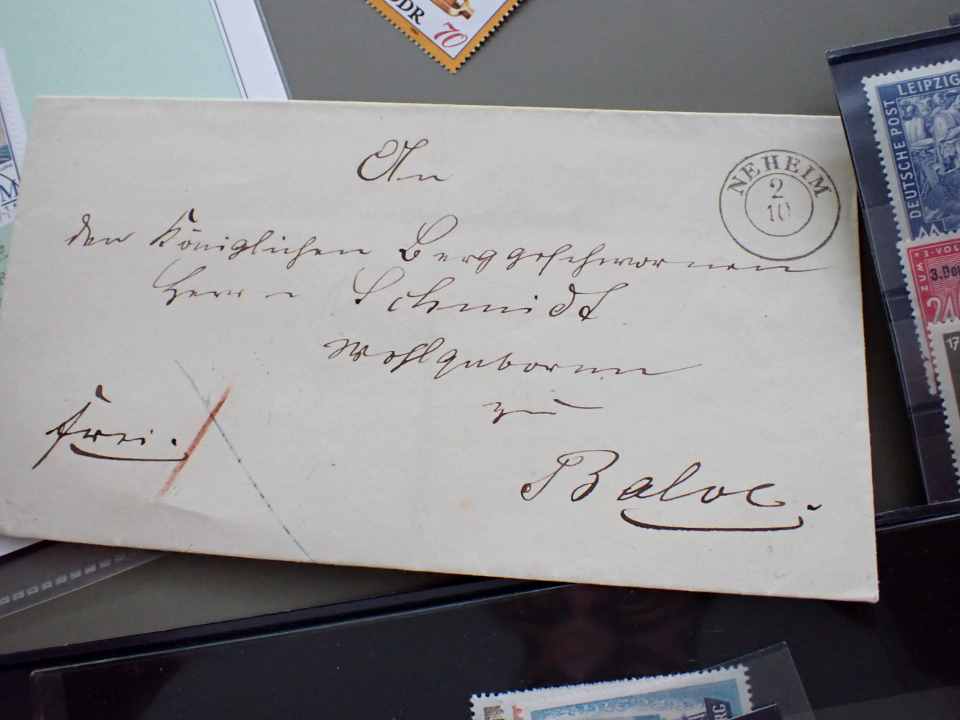 DDR 70
An
NEHEIM
2
10
den Königlichen Berggeschwornen
Herrn Schmidt
Wohlgeboren
zu
Frei.
Balve.
DEUTSCHE POST LEIPZIG
3.Dou
24
17